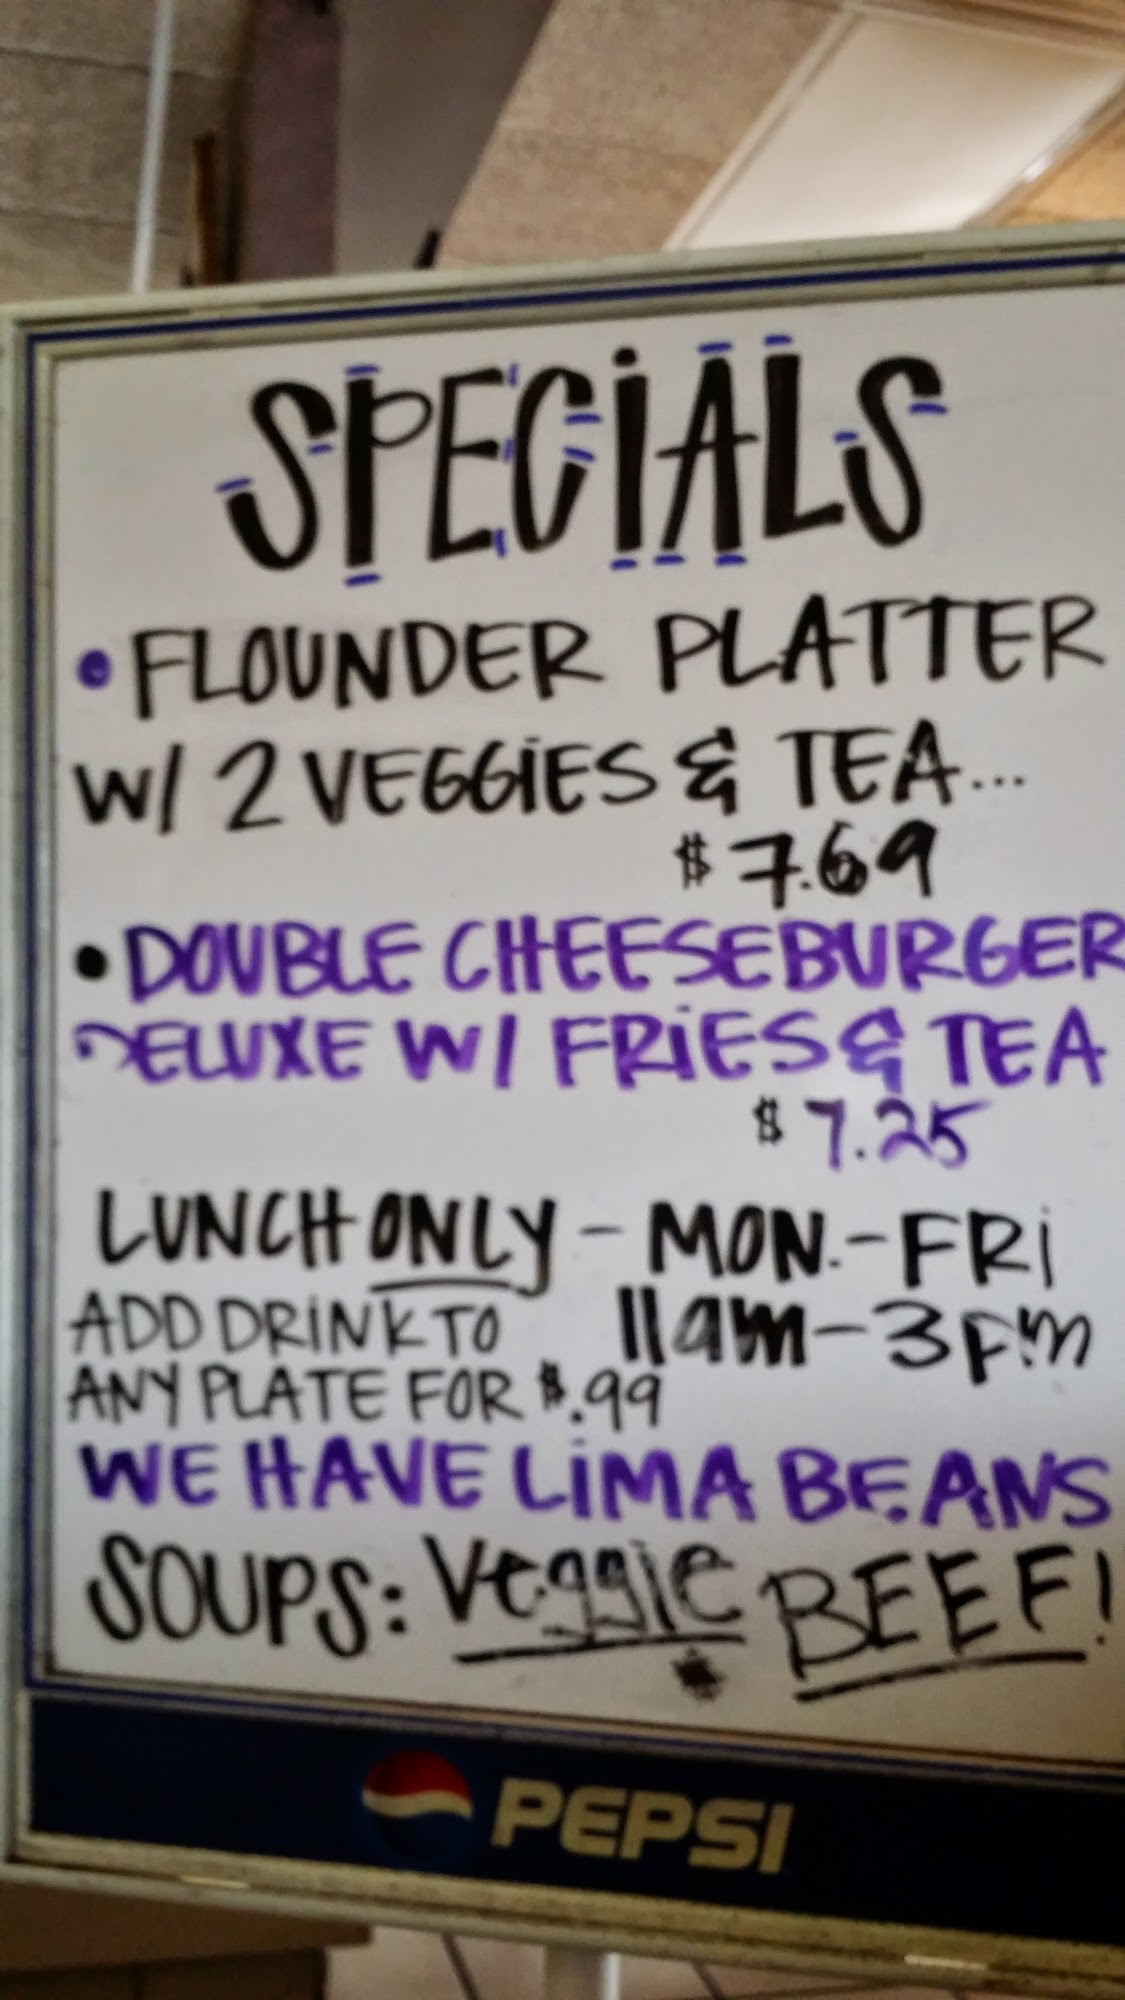 SPECIALS
• FLOUNDER PLATTER
W/ 2 VEGGIES & TEA...
$7.69
• DOUBLE CHEESEBURGER
DELUXE W/ FRIES & TEA
$7.25
LUNCH ONLY - MON.-FRI
11am-3pm
ADD DRINK TO
ANY PLATE FOR $.99
WE HAVE LIMA BEANS
SOUPS: Veggie BEEF!
PEPSI